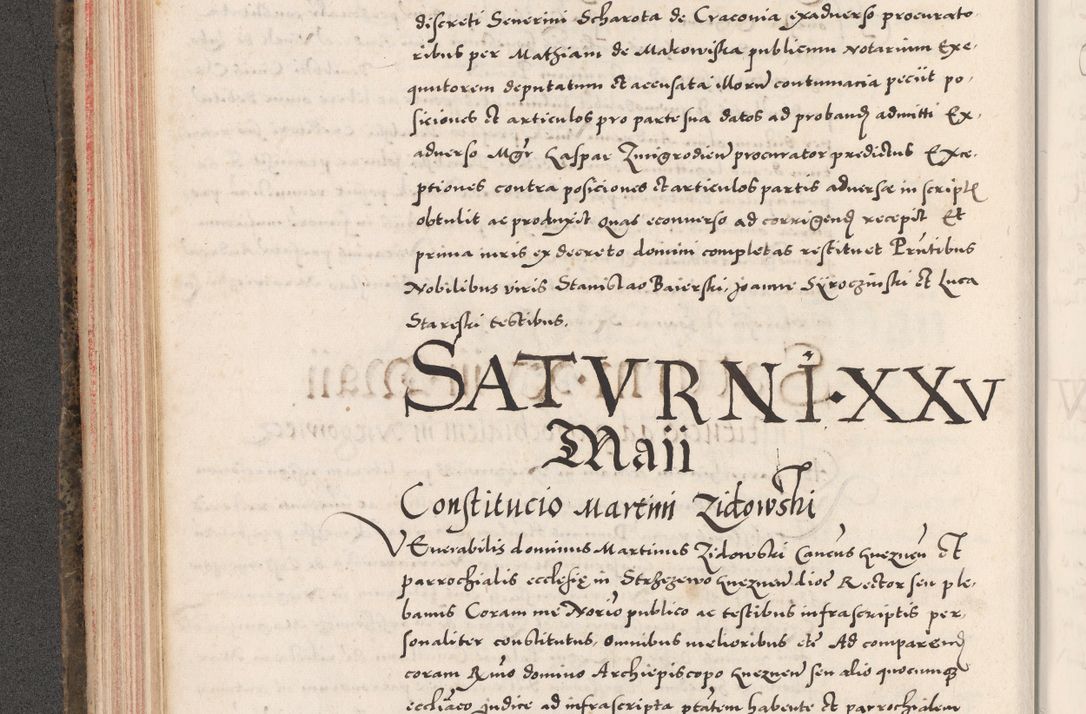 discreti Senerini Scharota de Craconia exadverso procurato-
ribus per Mathiam de Makowiska publicum Notarium Exe-
quutorem deputatum et accusata illorū contumacia peciit po-
siciones et articulos pro parte sua datos ad proband admitti Ex-
adverso Mgr Caspar Zmigrodien procurator predictus Exce-
ptiones contra posiciones et articulos partis adversæ in script
obtulit ac produxit quas econverso ad corrigend recepit Et
prima iuris ex decreto domini completas restituet Prñtibus
Nobilibus viris Stanislao Baierski, Joanne Syroczinski et Luca
Stareski testibus.
SATVRNI·XXV
Maii
Constitucio Martini Zidowski
VEnerabilis dominus Martinus Zidowski Cancus gneznen Et
parrochialis ecclesię in Strzezewo gneznen dioc Rector seu ple-
banus Coram me Norio publico ac testibus infrascriptis per-
sonaliter constitutus, omnibus melioribus etc Ad comparend
coram Rmo domino Archiepiscopo gneznen seu alio quocumque
eccliaco iudice ad infrascripta ptatem habente et parrochialem